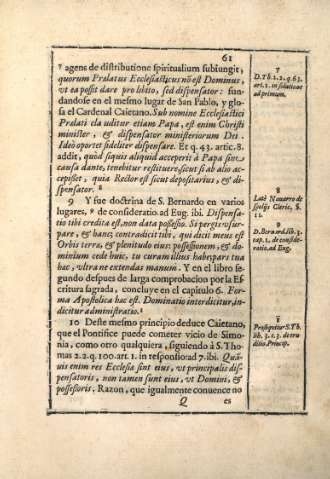 61
7 agens de distributione spiritualium subiungit,
quorum Prælatus Ecclesiasticus nõ est Dominus,
vt ea possit dare pro libito, sed dispensator: fun-
dandose en el mesmo lugar de San Pablo, y glo-
sa el Cardenal Caietano. Sub nomine Ecclesiastici
Prælati clauditur etiam Papa, est enim Christi
minister, & dispensator ministeriorum Dei.
Ideò oportet fideliter dispensare. Et q. 43. artic. 8.
addit, quòd siquis aliquid acceperit à Papa sine
causa dante, tenebitur restituere, sicut si ab alio ac-
cepisset, quia Rector est sicut depositarius, & di-
spensator. 8
9 Y fue doctrina de S. Bernardo en varios
lugares, 9 de consideratio ad Eug. ibi. Dispensa-
tio tibi credita est, non data possessio. Si pergis vsur-
pare, & hanc, contradicit tibi, qui dicit meus est
Orbis terræ, & plenitudo eius: possessionem, & do-
minium cede huic, tu curam illius habe, pars tua
hæc, vltra ne extendas manum. Y en el libro se
gundo despues de larga comprobacion por la Es
critura sagrada, concluye en el capitulo 6. For-
ma Apostolica hæc est. Dominatio interdicitur, in-
dicitur administratio. 1
10 Deste mesmo principio deduce Caietano,
que el Pontifice puede cometer vicio de Simo-
nia, como otro qualquiera, siguiendo à S. Tho
mas 2.2. q. 100. art. 1. in responsio ad 7. ibi. Quã-
uis enim res Ecclesiæ sint eius, vt principalis dis-
pensatoris, non tamen sunt eius, vt Domini, &
possessoris. Razon, que igualmente conuence no
Q es
7
D. Th. 2. 2. q. 63.
art. 2. in solutione
ad primum.
8
Latè Nauarro de
spolijs Cleric. §.
11.
D. Bernard. lib. 3.
cap. 1. de conside-
ratio. ad Eug.
1
S. Th.
lib. 3. c. 3.
Princip.